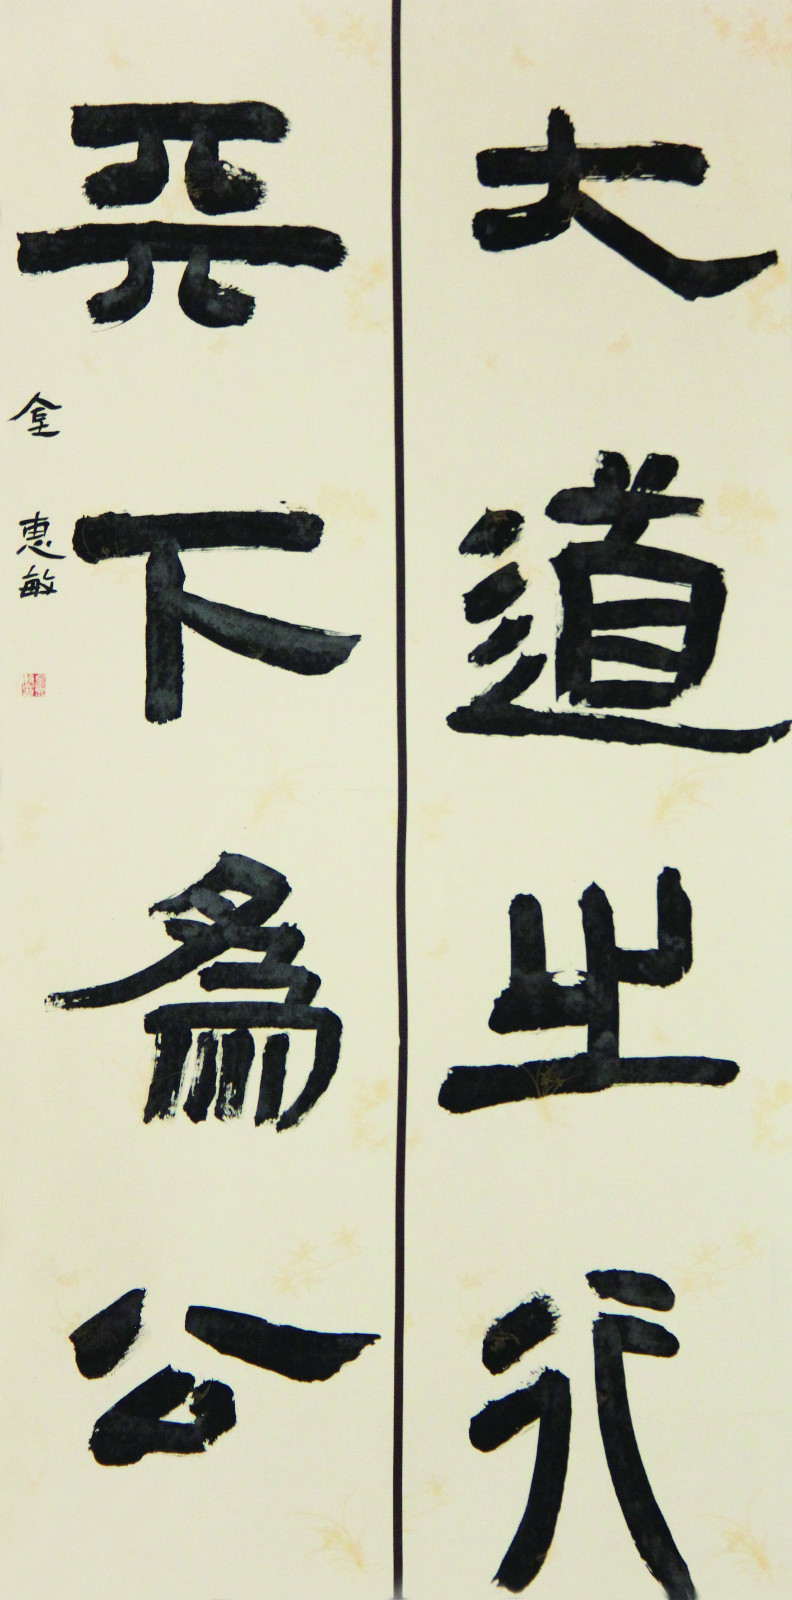 大道之行
天下爲公
金惠敏